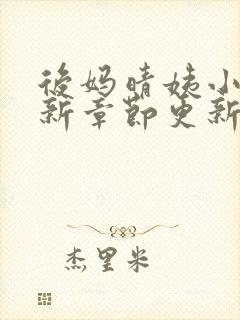 後妈晴姨小
新章节更新
杰里米